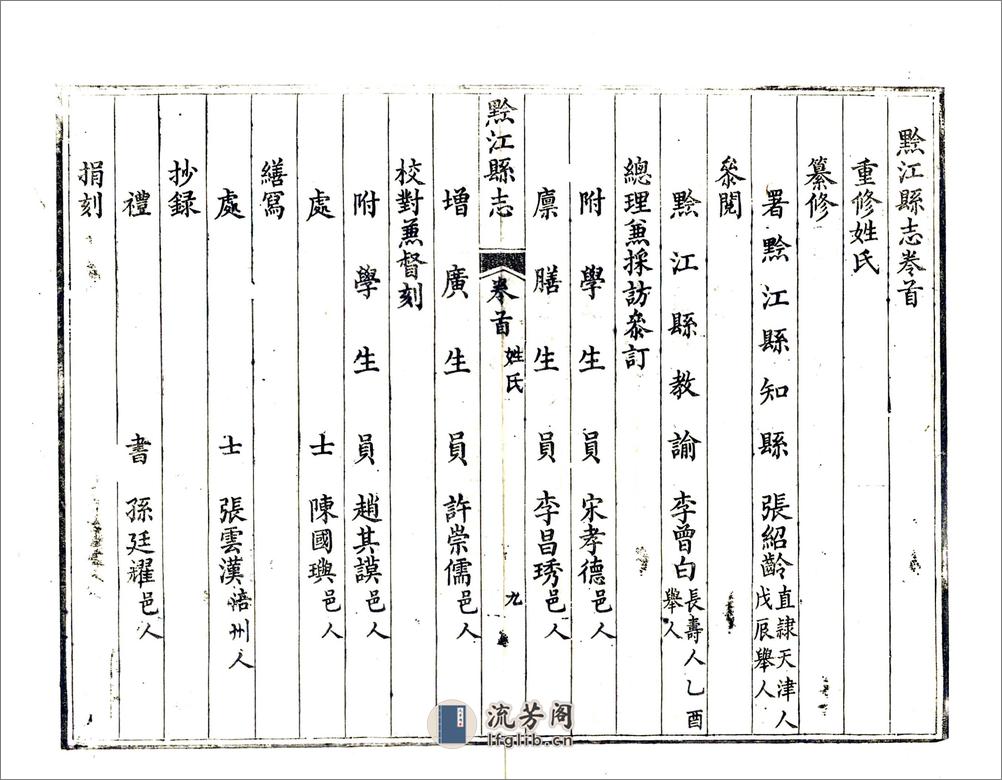 黔江縣志卷首
重修姓氏
纂修
署黔江縣知縣 張紹齡 直隸天津人戊辰舉人
叅閱
黔江縣教諭 李曾白 長壽人乙酉舉人
總理兼採訪叅訂
附學生員 宋孝德 邑人
廩膳生員 李昌琇 邑人
黔江縣志 卷首 姓氏 九
增廣生員 許崇儒 邑人
校對兼督刻
附學生員 趙其謨 邑人
處士 陳國璵 邑人
繕寫
處士 張雲漢 涪州人
抄録
禮書 孫廷耀 邑人
捐刻
流芳阁
lfglib.cn